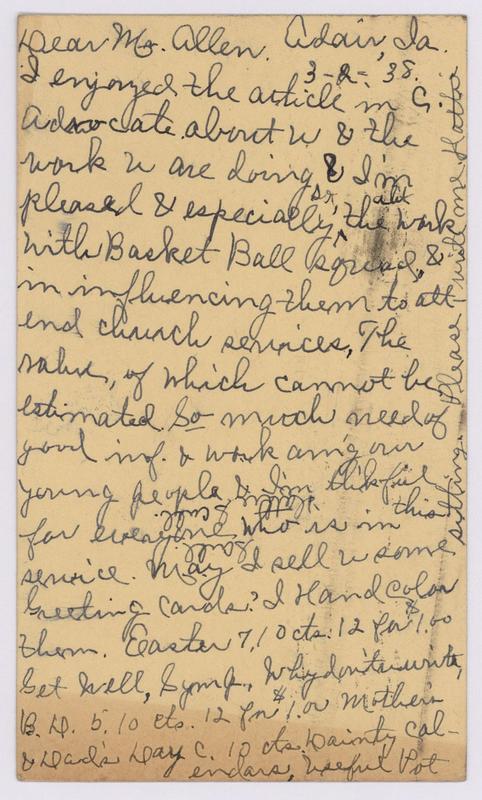 Dear Mr. Allen. Adair, Ia.
3-2-'38.
I enjoyed the article in C.
Advocate about u & the
work u are doing & I'm
pleased & especially, the work
with Basket Ball squad, &
in influencing them to att-
end church services, The
value, of which cannot be
estimated. So much need of
good inf. & work am'g our
young people & I'm th'kful
for everyone who is in this
service. May I sell u some
Greeting Cards? I Hand Color
them. Easter 7, 10 cts. 12 for $1.00
Get Well, Symp., Why don't u write,
B. D. 5, 10 cts. 12 for $1.00 Mother's
& Dad's Day C. 10 cts. Dainty Cal-
endars, Useful Pot
Please write me Hattie